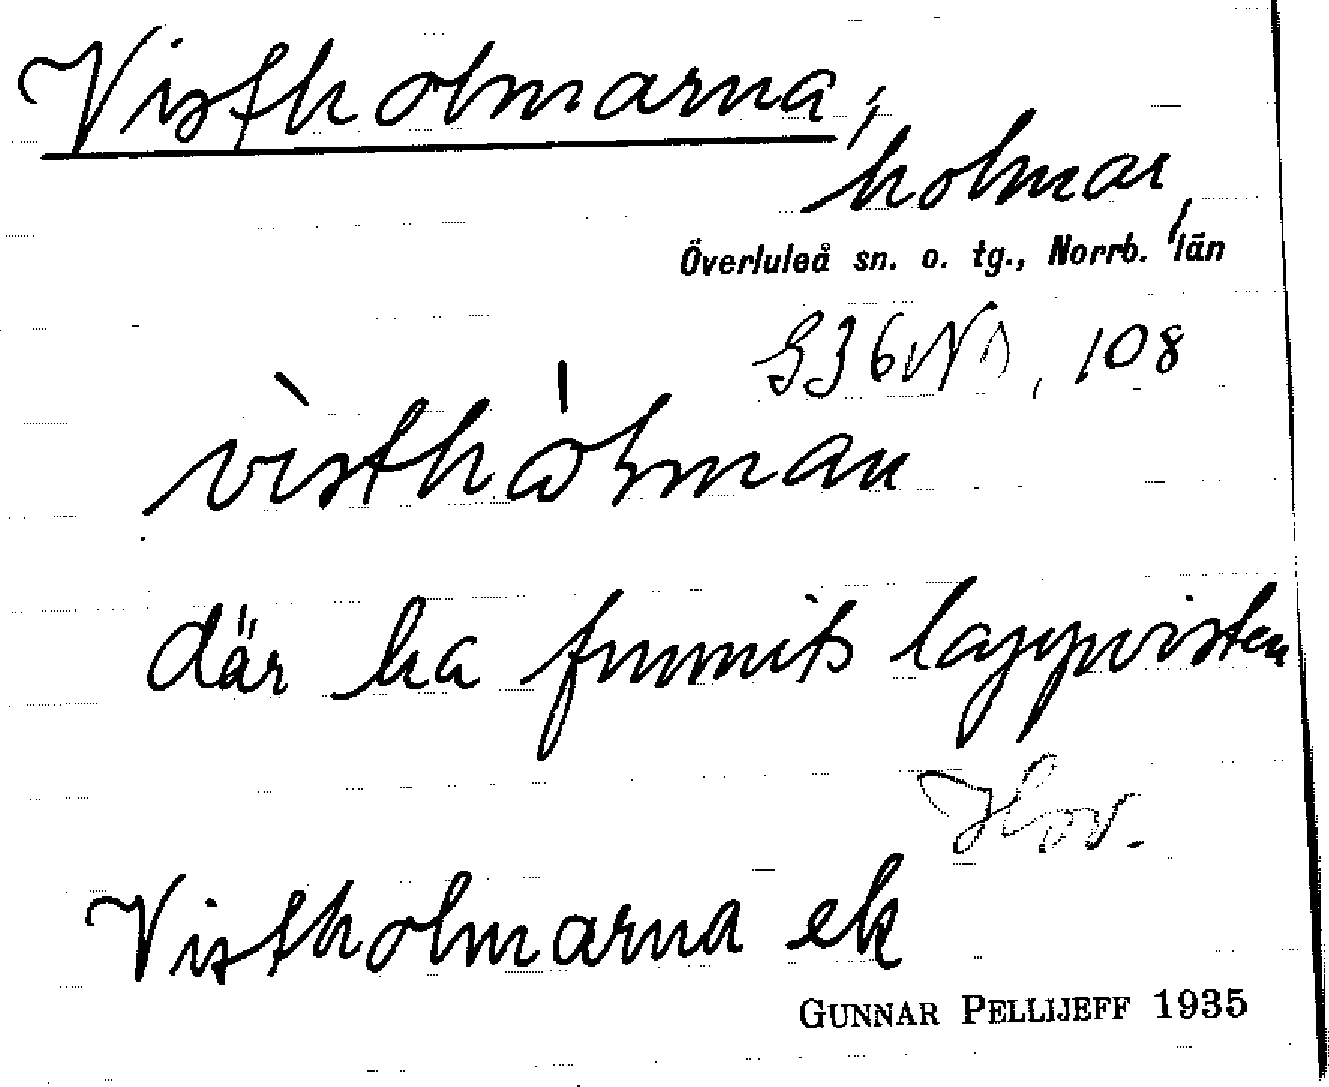 Vistholmarna,
holmar,
Överluleå sn. o. tg., Norrb. län
108
vìsthòlman
där ha funnits lappvisten
Vistholmarna ek
GUNNAR PELLIJEFF 1935